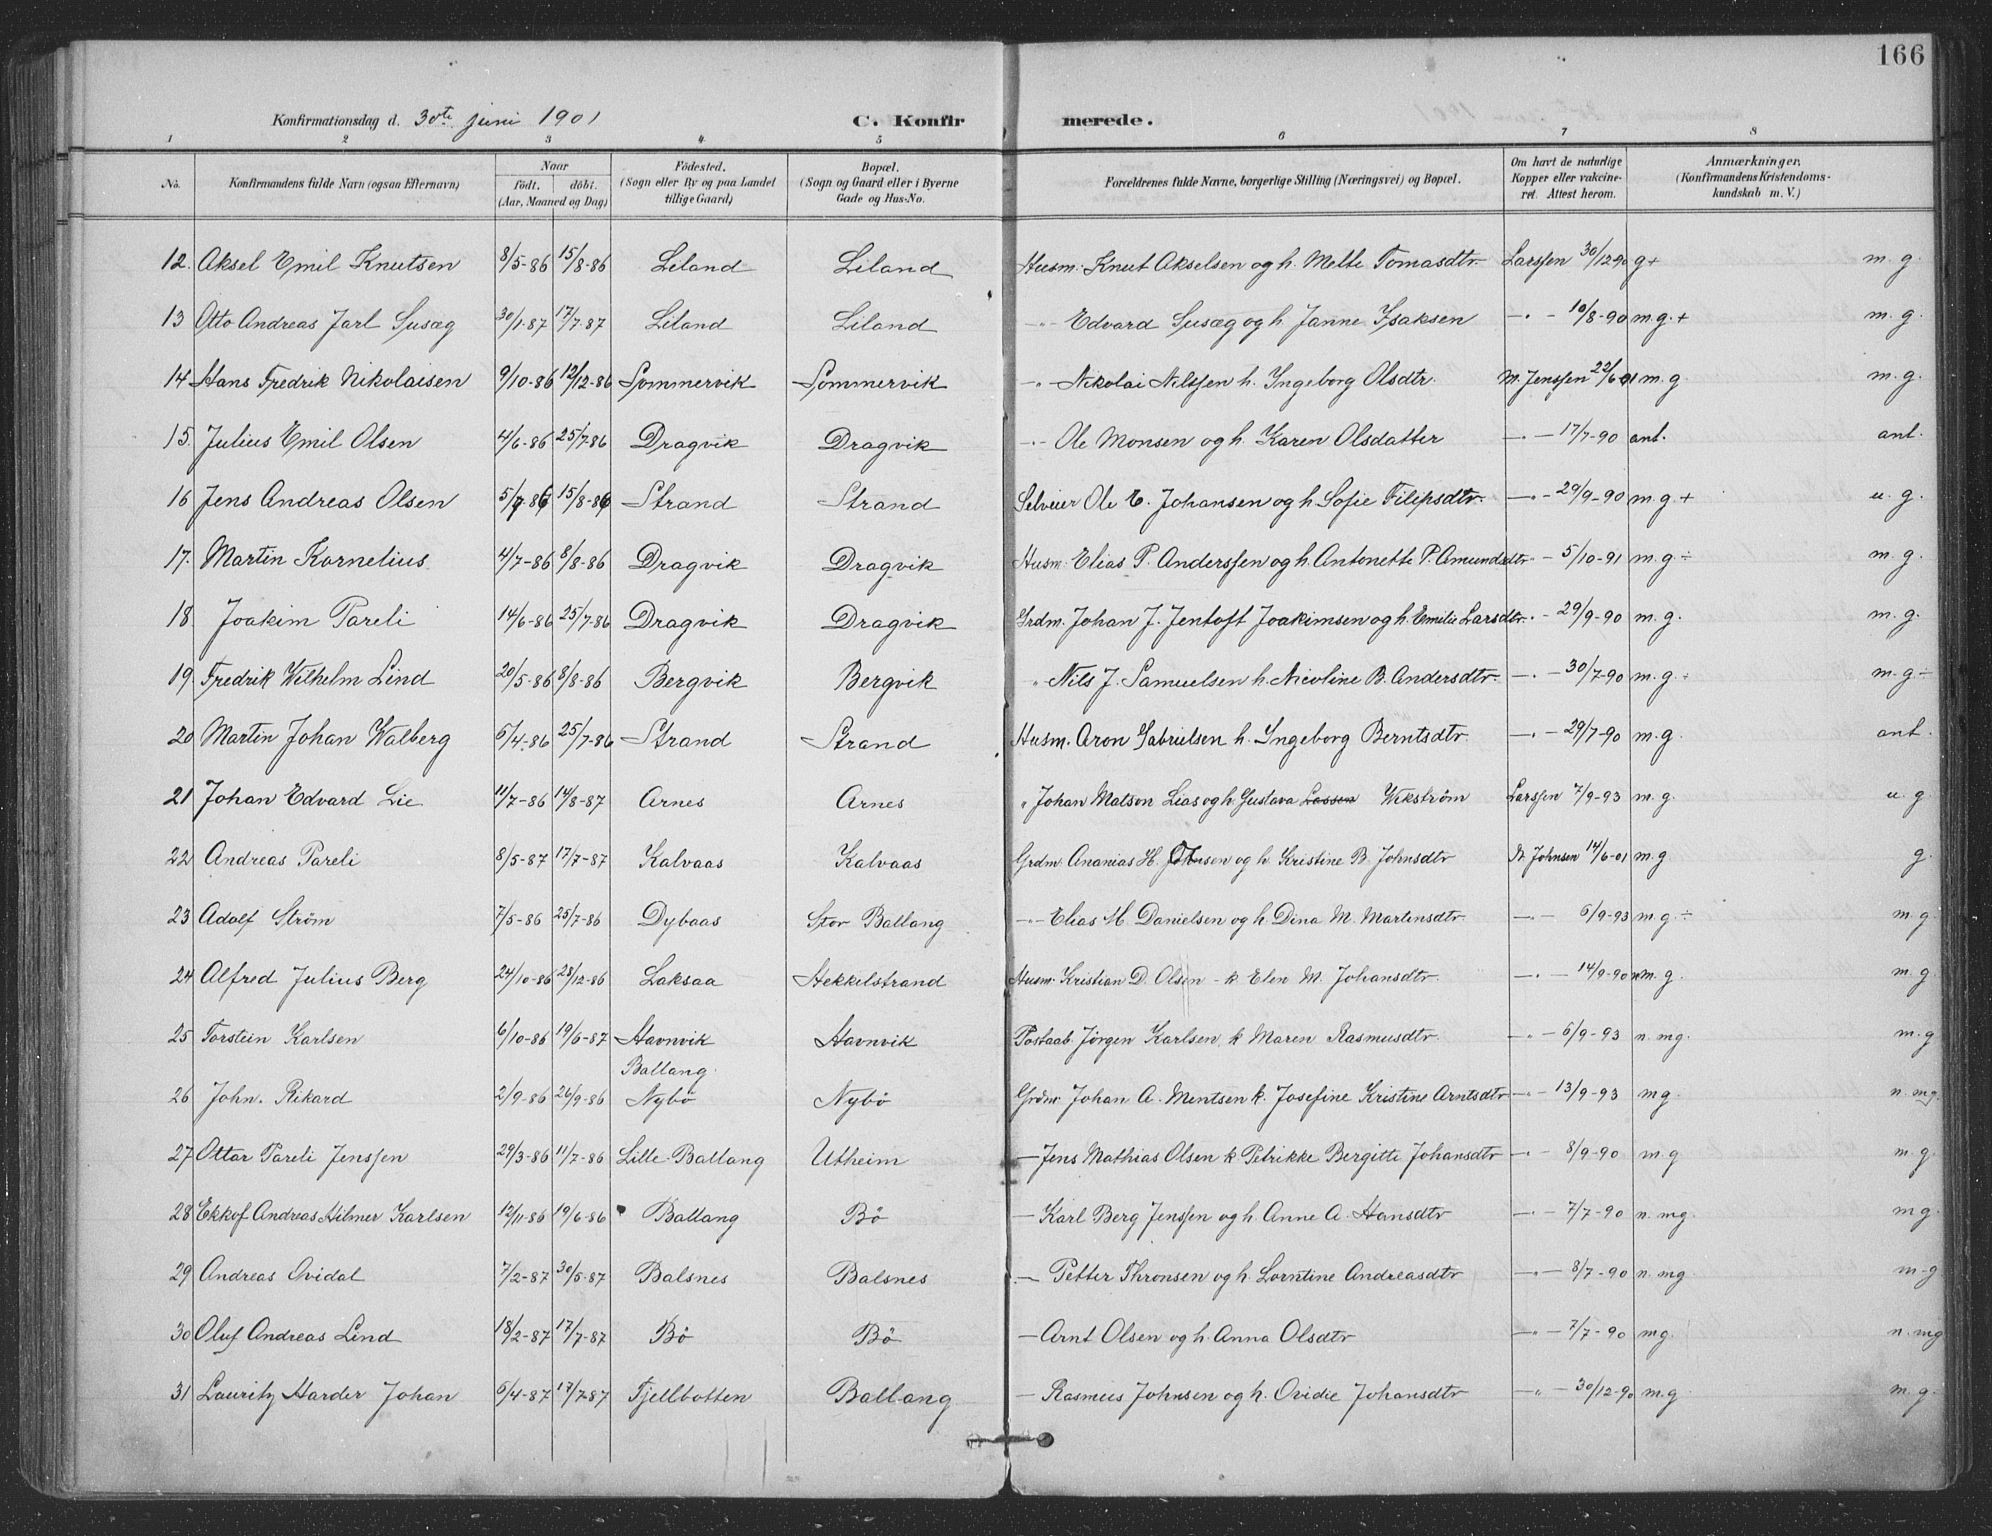 166
Konfirmationsdag d. 30te juni 1901 C. Konfirmerede.
1 2 3 4 5 6 7 8
No. Konfirmandens fulde Navn (ogsaa Efternavn) Naar födt. döbt. (Aar, Maaned og Dag) Födested. (Sogn eller By og paa Landet tillige Gaard) Bopæl. (Sogn og Gaard eller i Byerne Gade og Hus-No. Forældrenes fulde Navne, borgerlige Stilling (Næringsvei) og Bopæl. Om havt de naturlige Kopper eller vakcineret. Attest herom. Anmærkninger. (Konfirmandens Kristendomskundskab m. V.)
12. Aksel Emil Knutsen 8/5-86 15/8-86 Liland Liland Husm. Knut Akselsen og h. Mette Tomasdtr. Larssen 30/12-90 g+ m. g.
13 Otto Andreas Jarl Susæg 30/1-87 17/7-87 Liland Liland -"- Edvard Susæg og h. Janne Isaksen -"- 10/8-90 m.g.+ m. g.
14 Hans Fredrik Nikolaisen 9/10-86 12/12-86 Sommervik Sommervik -"- Nikolai Nilssen h. Ingeborg Olsdtr. M. Jenssen 22/6-01 m.g. m. g.
15. Julius Emil Olsen 4/6-86 25/7-86 Dragvik Dragvik -"- Ole Monsen og h. Karen Olsdatter -"- 17/7-90 ant. ant.
16 Jens Andreas Olsen 5/7-86 15/8-86 Strand Strand Selveier Ole E. Johansen og h. Sofie Filipsdtr. -"- 29/9-90 m.g.+ u. g.
17. Martin Kornelius 4/7-86 8/8-86 Dragvik Dragvik Husm. Elias P. Anderssen og h. Antonette P. Amundsdtr -"- 5/10-91 m.g.÷ m. g.
18. Joakim Pareli 14/6-86 25/7-86 Dragvik Dragvik Grdm. Johan J. Jentoft Joakimsen og h. Emilie Larsdtr. -"- 29/9-90 m.g. m. g.
19. Fredrik Wilhelm Lind 20/5-86 8/8-86 Bergvik Bergvik " Nils J. Samuelsen h. Nicoline B. Andersdtr. -"- 30/7-90 m.g.÷ m.g÷
20 Martin Johan Walberg 5/4-86 25/7-86 Strand Strand Husm. Aron Gabrielsen h. Ingeborg Berntsdtr. -"- 29/7-90 m.g. ant.
21 Johan Edvard Lie 11/7-86 14/8-87 Arnes Arnes " Johan Matson Lias og h. Gustava Lassen Wikström Larssen 7/9-93 m.g. u. g.
22 Andreas Pareli 8/5-87 17/7-87 Kalvaas Kalvaas Grdm. Ananias H. Johnsen og h. Kristine B. Johnsdtr Johnsen 14/6-01 m.g. g.
23 Adolf Ström 7/5-86 25/7-86 Dybaas Stor Ballang -"- Elias M Danielsen og h. Dina M. Martinsdtr. -"- 6/9-93 m.g.÷ m. g
24 Alfred Julius Berg 24/10-86 28/12-86 Laksaa Hekkelstrand Husm. Kristian D. Olsen - k Elen M. Johansdtr. -"- 14/9-90 n m.g. m. g
25 Torstein Karlsen 6/10-86 19/6-87 Havnvik Havnvik Postaab. Jörgen Karlsen k Maren Rasmusdtr. -"- 6/9-93 n. mg. m. g
26 John. Rikard 2/9-86 26/9-86 Ballang. Nybö Nybö Grdm. Johan A. Mentsen k. Josefine Kristine Arntsdtr -"- 13/9-93 mg. n. mg.
27 Ottar Pareli Jenssen 29/3-86 11/7-86 Lille-Ballang Utheim - Jens Mathias Olsen k Petrikke Bergitte Johansdtr -"- 8/9-90 m.g m. g.
28 Ekkof Andreas Hilmer Karlsen 12/11-86 19/6-86 Ballang Bö - Karl Berg Jenssen og h. Anne A. Hansdtr -"- 7/7-90 n. mg. m g.
29 Andreas Ovidal 7/2-87 30/5-87 Balsnes Balsnes - Petter Thronsen og h. Lorntine Andreasdtr -"- 8/7-90 n. mg. m-g
30 Oluf Andreas Lind 18/2-87 17/7-87 Bö Bö - Arnt Olsen og h. Anna Olsdtr -"- 7/7-90 mg. n. mg
31 Lauritz Harder Johan 6/4-87 17/7-87 Fjellbotten Ballang - Rasmus Johnsen og h. Ovidie Johansdtr -"- 30/12-90 m.g. m. g.